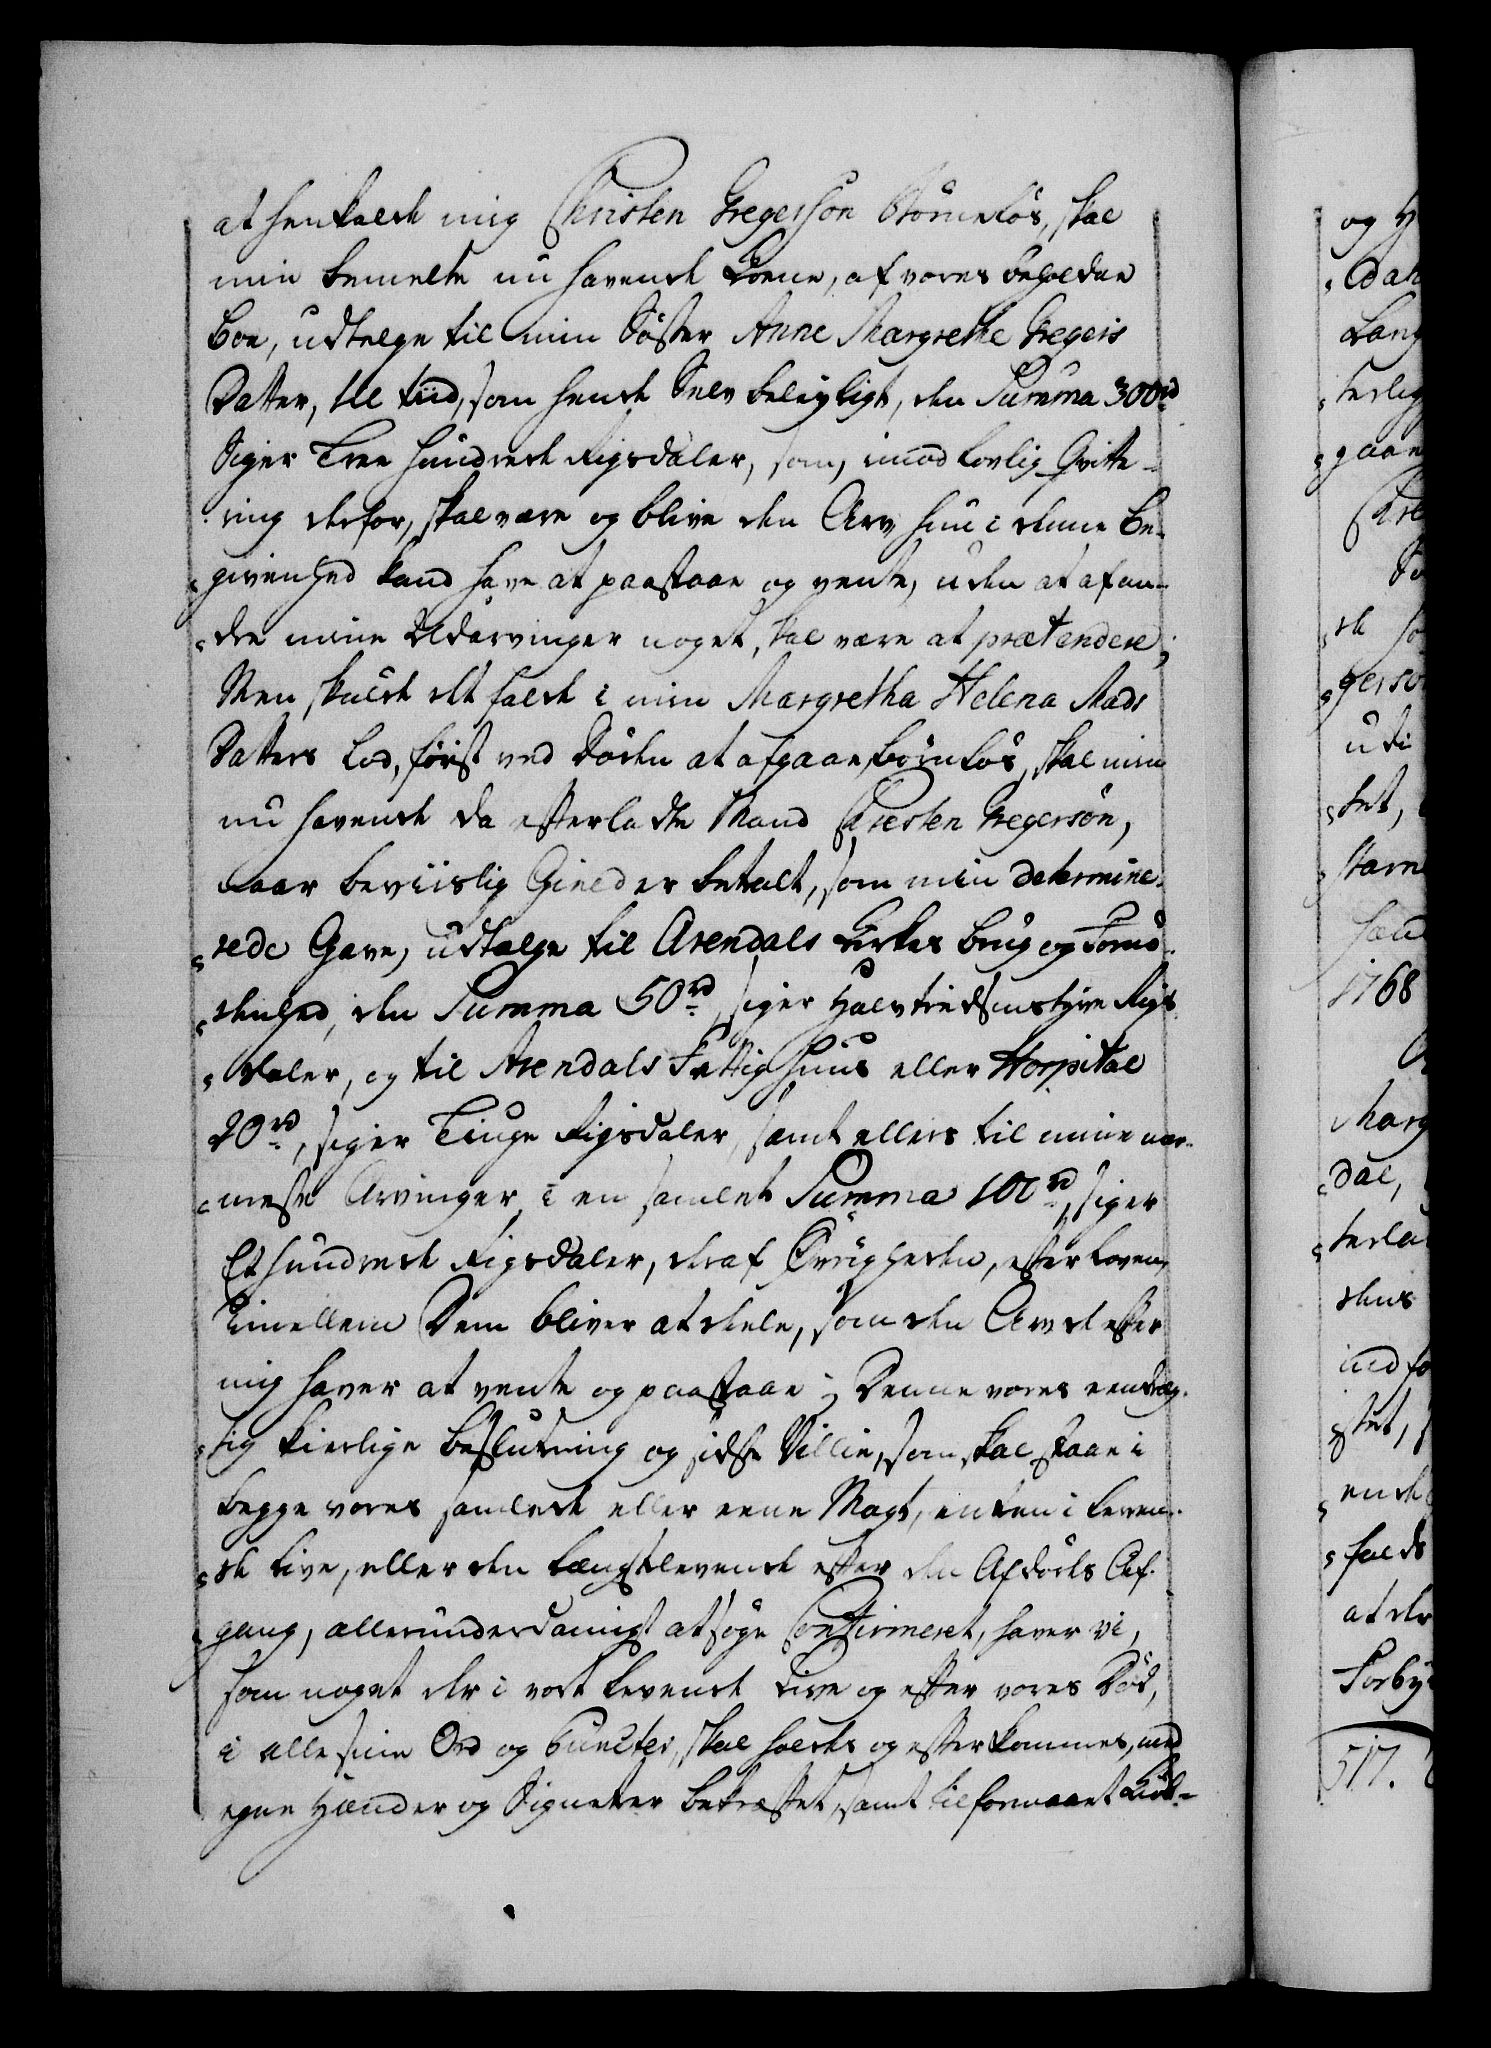 at henkalde mig Christen Gregersøn Børneløs, skal
min bemelte nu havende Kone, af vores beholdne
Boe, udtælge til min Søster Anne Margrethe Gregers
Datter, til tiid, som hende Selv beleyligt, den Summa 300 rd
Siger Tree hundrede Rigsdaler, som, imod lovlig Qvitte-
ring derfor, skal være og blive den Arv hun i denne Be-
givenhed kand have at paastaae og vente, uden at af an-
dre mine Udarvinger noget, skal være at prætendere;
Men skulde det falde i min Margretha Helena Mads
Datters Lod, først ved Døden at afgaae, børnløs, skal min
nu havende da efterladte Mand Christen Gregersøn,
naar beviislig Gield er betalt, som min determine-
rede Gave, udtælge til Arendals Kirkes Brug og Fornø-
denhed, den Summa 50 rd, siger Halvtredsindstyve Rigs
daler, og til Arendals Fattig Huus eller Hospital
20 rd, siger Tiuge Rigsdaler, samt ellers til mine nær-
meste Arvinger, i en samlet Summa 100 rd, siger
Et hundrede Rigsdaler, deraf Øvrigheden, efter Loven,
imellem Dem bliver at dele, som den Arv de efter
mig haver at vente og paastaae; Denne vores eendræg-
tig kierlige Beslutning og sidste Villie, som skal staae i
begge vores samlede eller eene Magt, enten i leven-
de Live, eller den længstlevende efter den Afdødes Af-
gang, allerunderdanigst at søge Confirmeret, haver vi,
som noget der i vort levende Live og efter vores Død,
i alle sine Ord og Puncter, skal holdes og efterkommes, med
egne Hænder og Signeter bekræftet, samt tilformaaet
og
Lang
gaae
gersø
udi
1768
Marg
dal,
dens
indfo
ende
falds
at der
517.